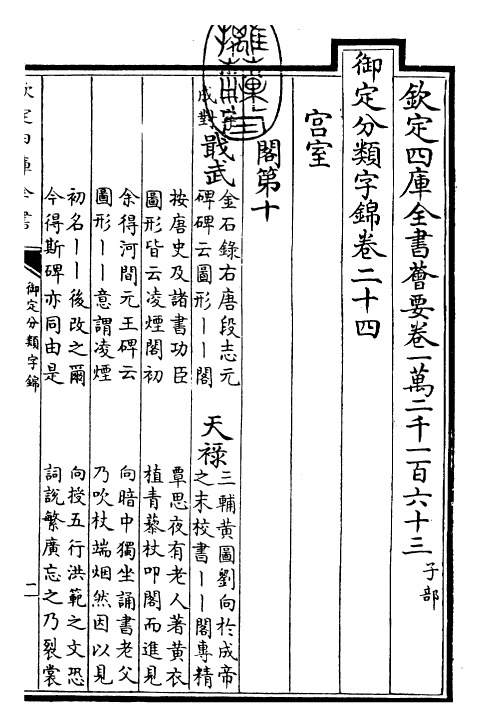 欽定四庫全書薈要卷一萬二千一百六十三 子部
御定分類字錦卷二十四
宫室
閣第十
成對
戢武
金石錄右唐段志元
碑碑云圖形丨丨閣
按唐史及諸書功臣
圖形皆云凌煙閣初
余得河間元王碑云
圖形丨丨意謂凌煙
初名丨丨後改之爾
今得斯碑亦同由是
天祿
三輔黃圖劉向於成帝
之末校書丨丨閣專精
覃思夜有老人著黄衣
植青藜杖叩閣而進見
向暗中獨坐誦書老父
乃吹杖端烟然因以見
向授五行洪範之文恐
詞說繁廣忘之乃裂裳
欽定四庫全書
御定分類字錦
一